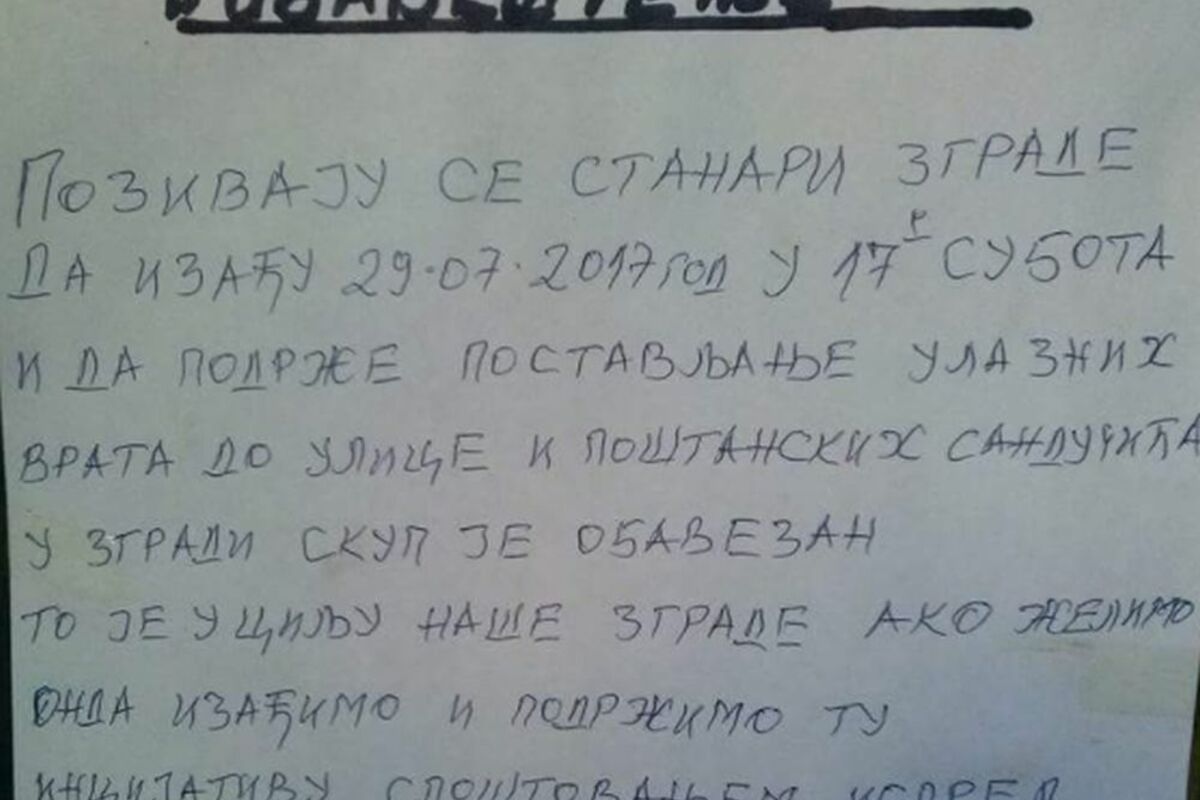 ОБАВЕШТЕЊЕ
ПОЗИВАЈУ СЕ СТАНАРИ ЗГРАДЕ
ДА ИЗАЂУ 29.07.2017 год У 17 Г СУБОТА
И ДА ПОДРЖЕ ПОСТАВЉАЊЕ УЛАЗНИХ
ВРАТА ДО УЛИЦЕ И ПОШТАНСКИХ САНДУЧИЋА
У ЗГРАДИ СКУП ЈЕ ОБАВЕЗАН
ТО ЈЕ У ЦИЉУ НАШЕ ЗГРАДЕ АКО ЖЕЛИМО
ОНДА ИЗАЂИМО И ПОДРЖИМО ТУ
ИНЦИЈАТИВУ СПОШТОВАЊЕМ ИСПРЕД